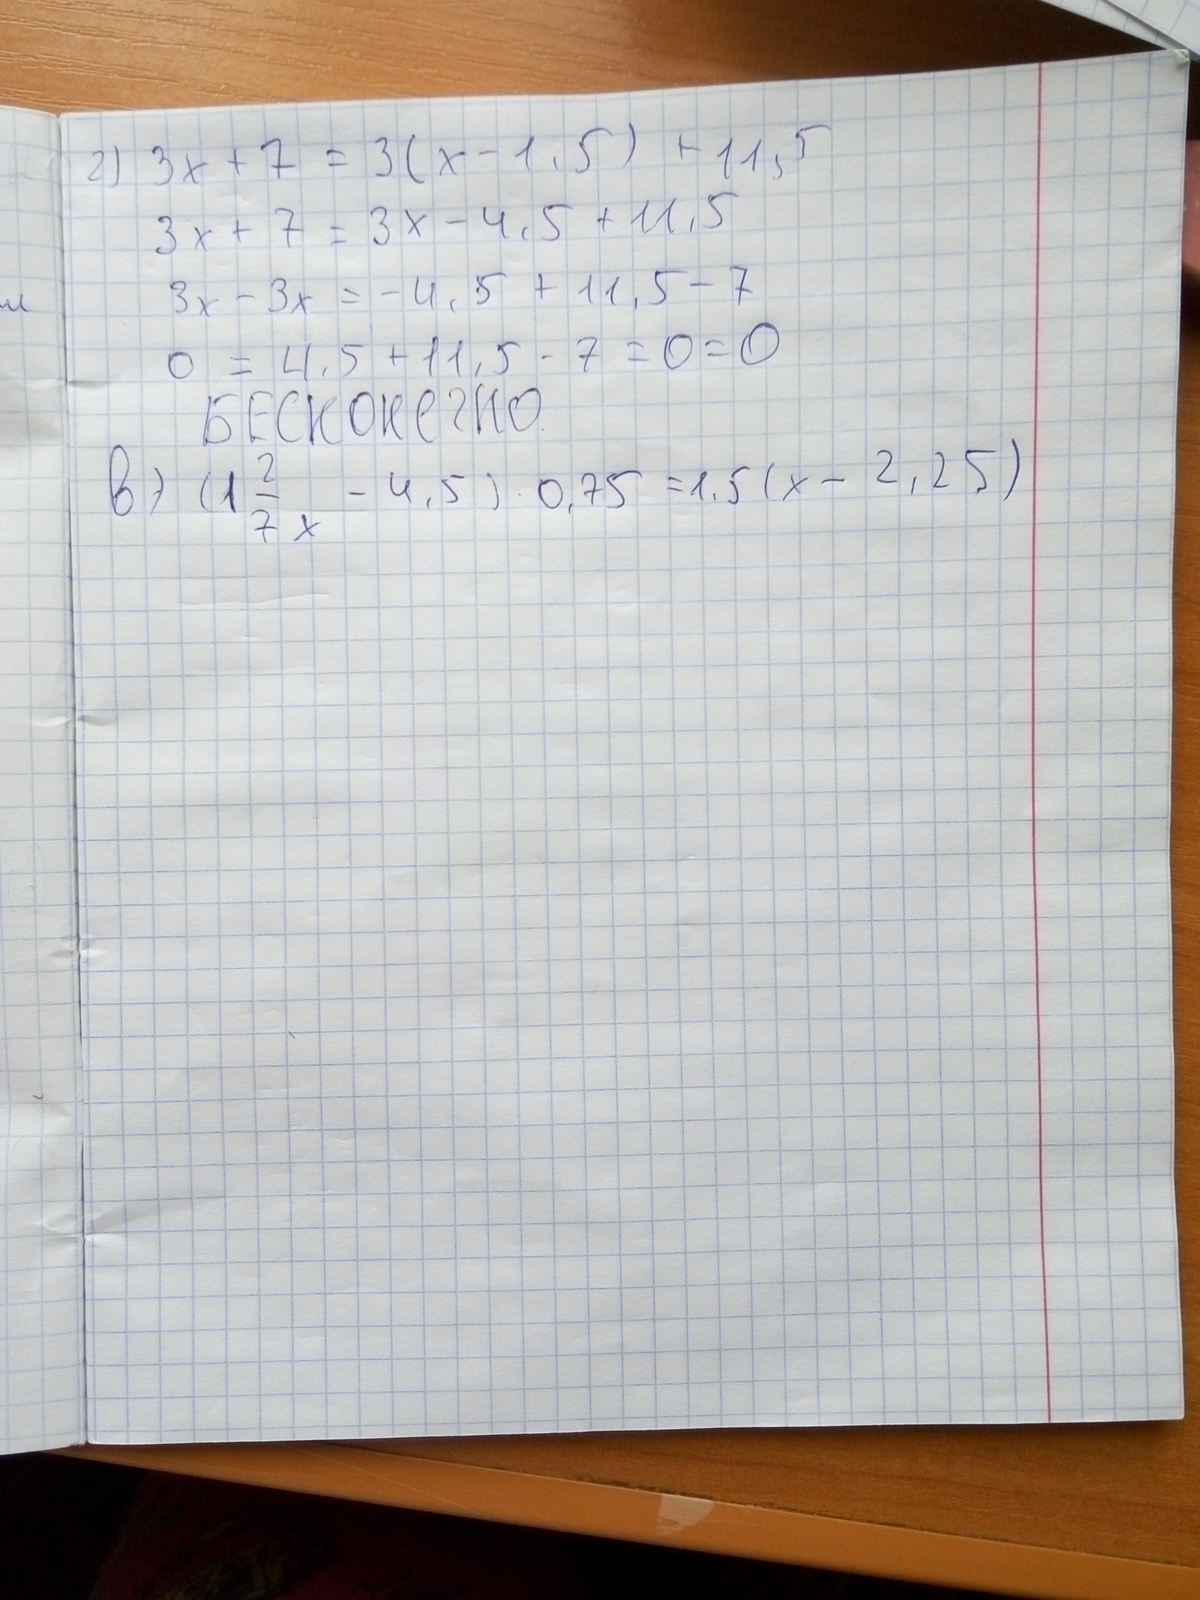 г) 3x + 7 = 3(x - 1,5) + 11,5
3x + 7 = 3x - 4,5 + 11,5
3x - 3x = -4,5 + 11,5 - 7
0 = 4,5 + 11,5 - 7 = 0 = 0
БЕСКОНЕЧНО.
в) (1 2/7 x - 4,5) · 0,75 = 1,5(x - 2,25)